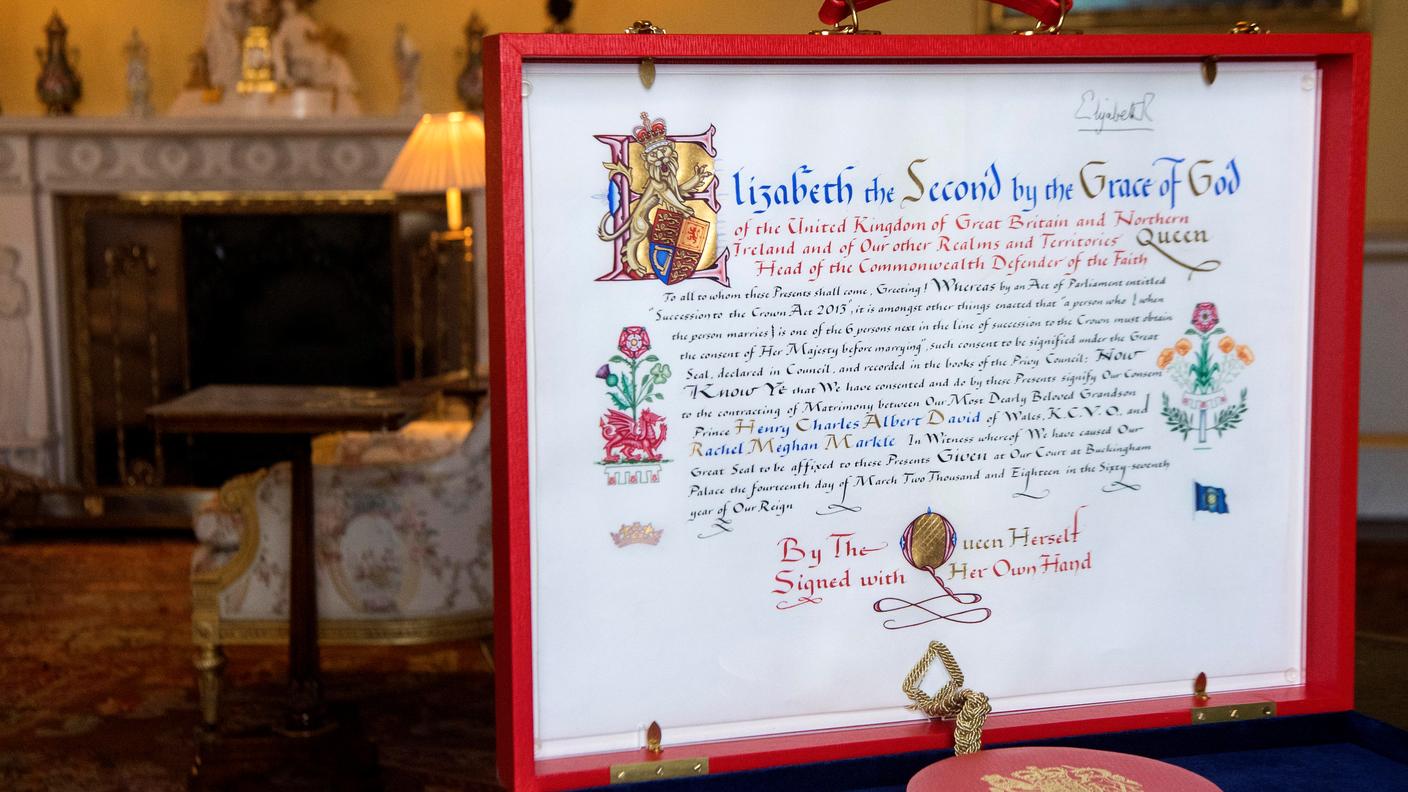 Elizabeth R
Elizabeth the Second by the Grace of God
of the United Kingdom of Great Britain and Northern
Ireland and of Our other Realms and Territories Queen
Head of the Commonwealth Defender of the Faith
To all to whom these Presents shall come, Greeting! Whereas by an Act of Parliament entitled
"Succession to the Crown Act 2013", it is amongst other things enacted that "a person who { when
the person marries } is one of the 6 persons next in the line of succession to the Crown must obtain
the consent of Her Majesty before marrying", such consent to be signified under the Great
Seal, declared in Council, and recorded in the books of the Privy Council: Now
Know Ye that We have consented and do by these Presents signify Our Consent
to the contracting of Matrimony between Our Most Dearly Beloved Grandson
Prince Henry Charles Albert David of Wales, K.C.V.O., and
Rachel Meghan Markle In Witness whereof We have caused Our
Great Seal to be affixed to these Presents Given at Our Court at Buckingham
Palace the fourteenth day of March Two Thousand and Eighteen in the Sixty-seventh
year of Our Reign
By The Queen Herself
Signed with Her Own Hand